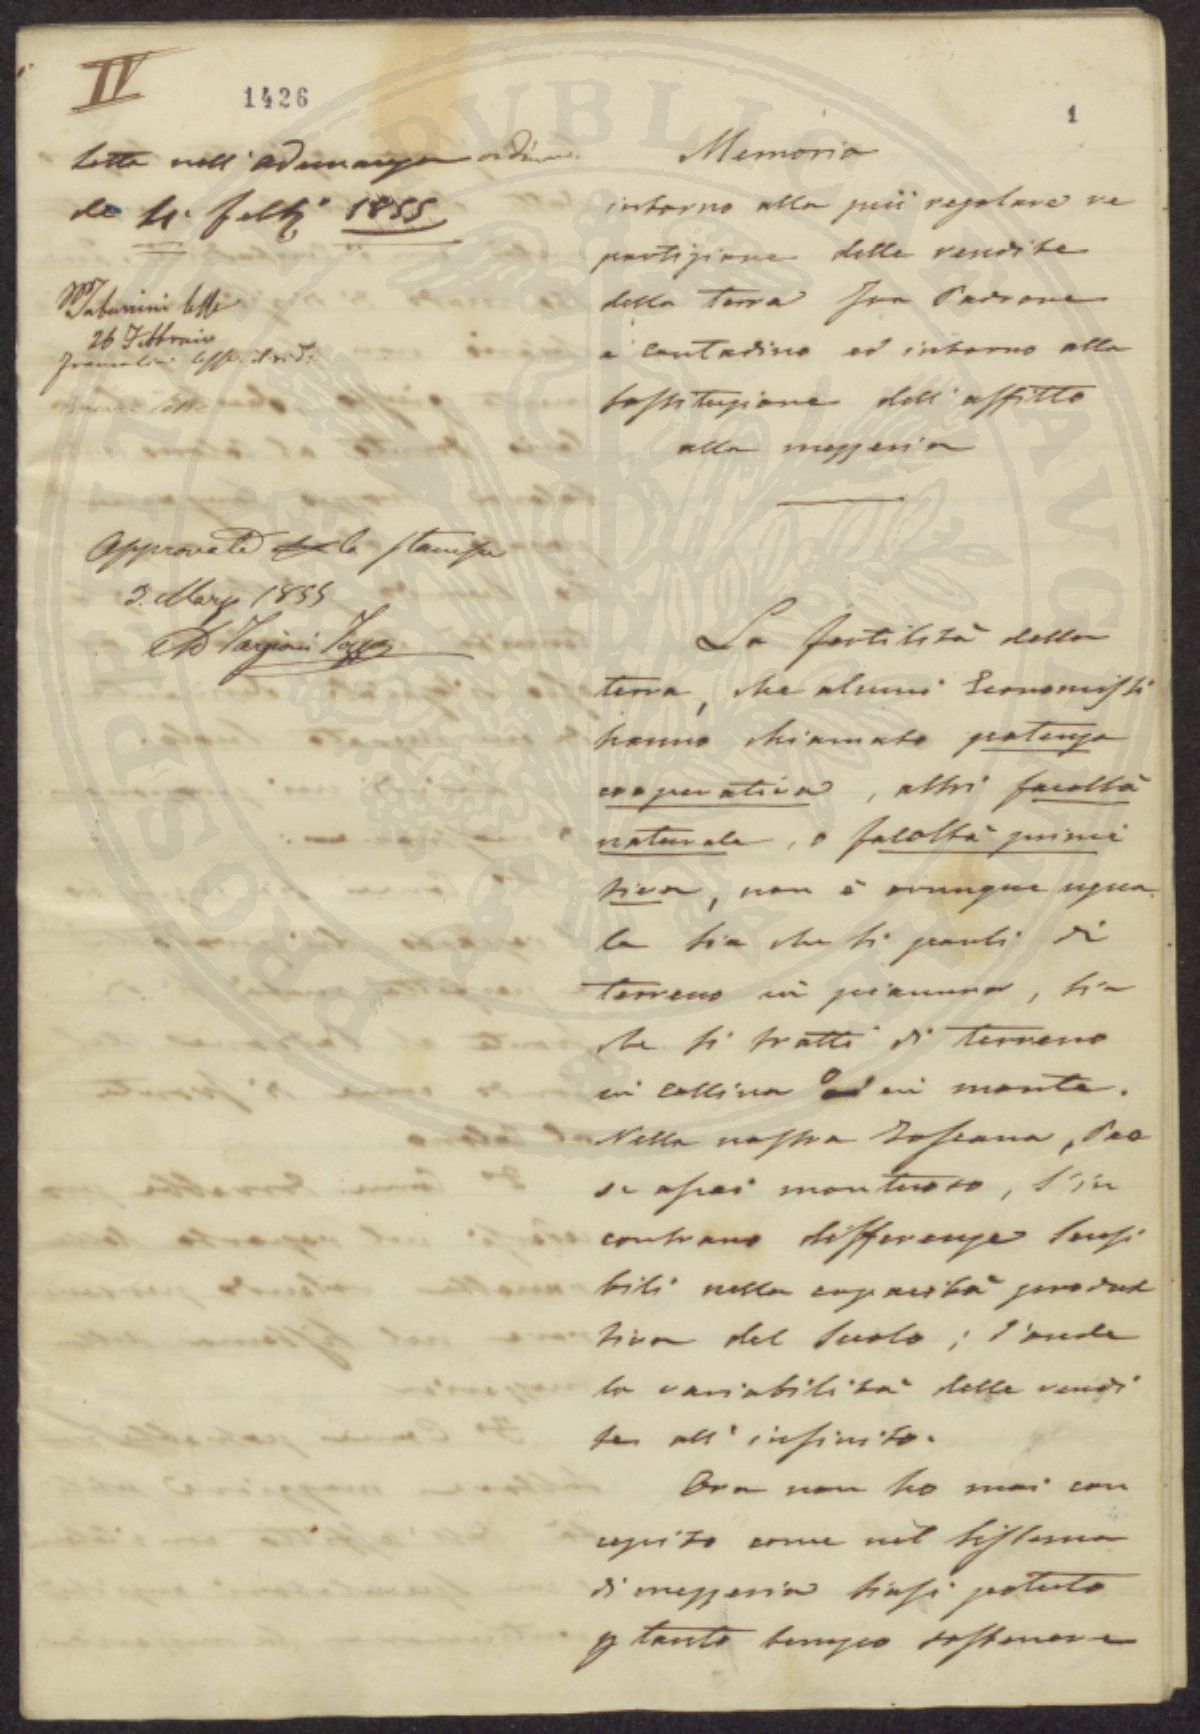 IV
1426
1
Letta nell' adunanza ordin.
de 4. febb.° 1855
Taburrini lesse
26 Febbraio
Approvata per la stampa
3. Marzo 1855
AD Targioni Tozz
Memoria
intorno alla più regolare re
partizione delle rendite
della terra fra Padrone
e contadino ed intorno alla
sostituzione dell' affitto
alla mezzeria
La fertilità della
terra, che alcuni Economisti
hanno chiamato potenza
cooperativa, altri facoltà
naturale, o facoltà primi
tiva, non è ovunque ugua
le sia che si parli di
terreno in pianura, sia
che si tratti di terreno
in collina o in monte.
Nella nostra Toscana, Pae
se assai montuoso, s'in
contrano differenze sensi
bili nella capacità produt
tiva del suolo; d'onde
la variabilità delle rendi
te all' infinito.
Ora non ho mai con
cepito come nel sistema
di mezzeria siasi potuto
p tanto tempo sostenere
PROSPERITATI PVBLICAE AVGENDAE